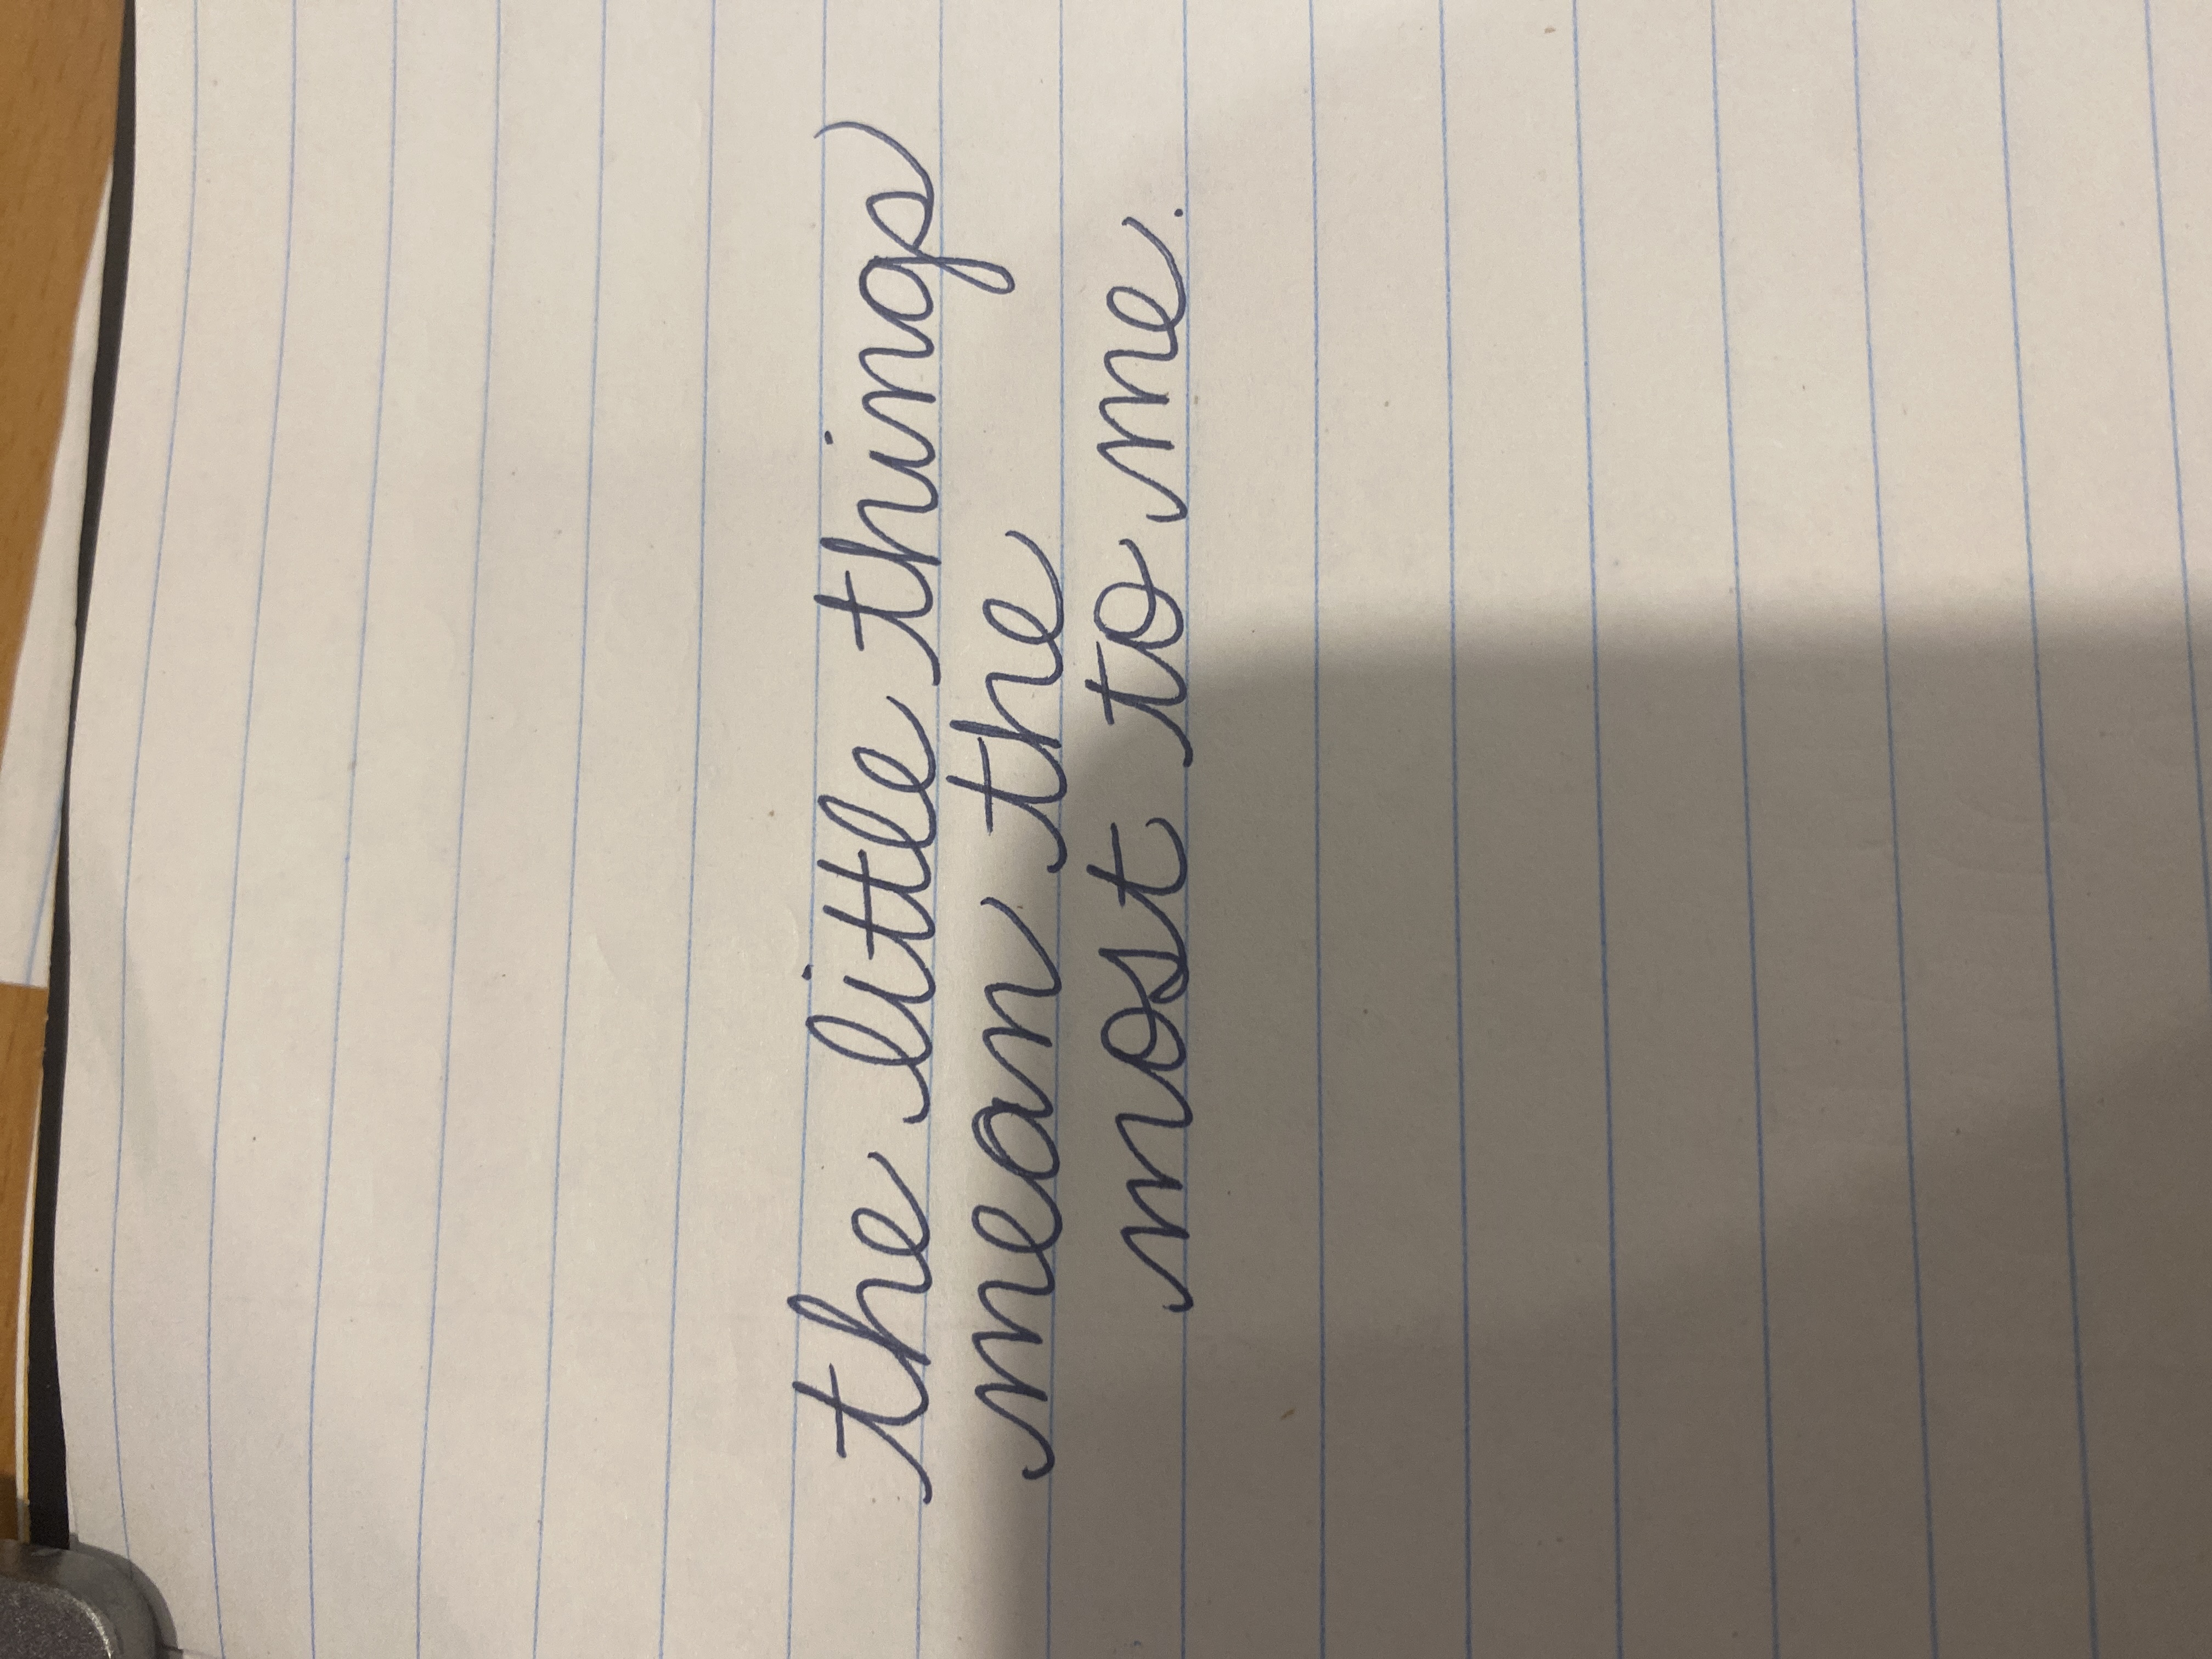 the little things
mean the
most to me.